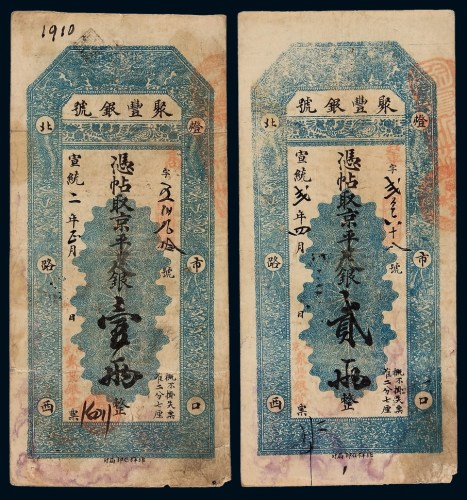 1910
聚豐銀號
北
燈
市
口
路
西
字
號
憑帖取京平足銀壹兩整
宣統二年正月 日
概不掛失票
在二分七厘
票
聚豐銀號
北
燈
市
口
路
西
字
弍 六十八
號
憑帖取京平足銀貳兩整
宣統弍年四月 日
概不掛失票
在二分七厘
票